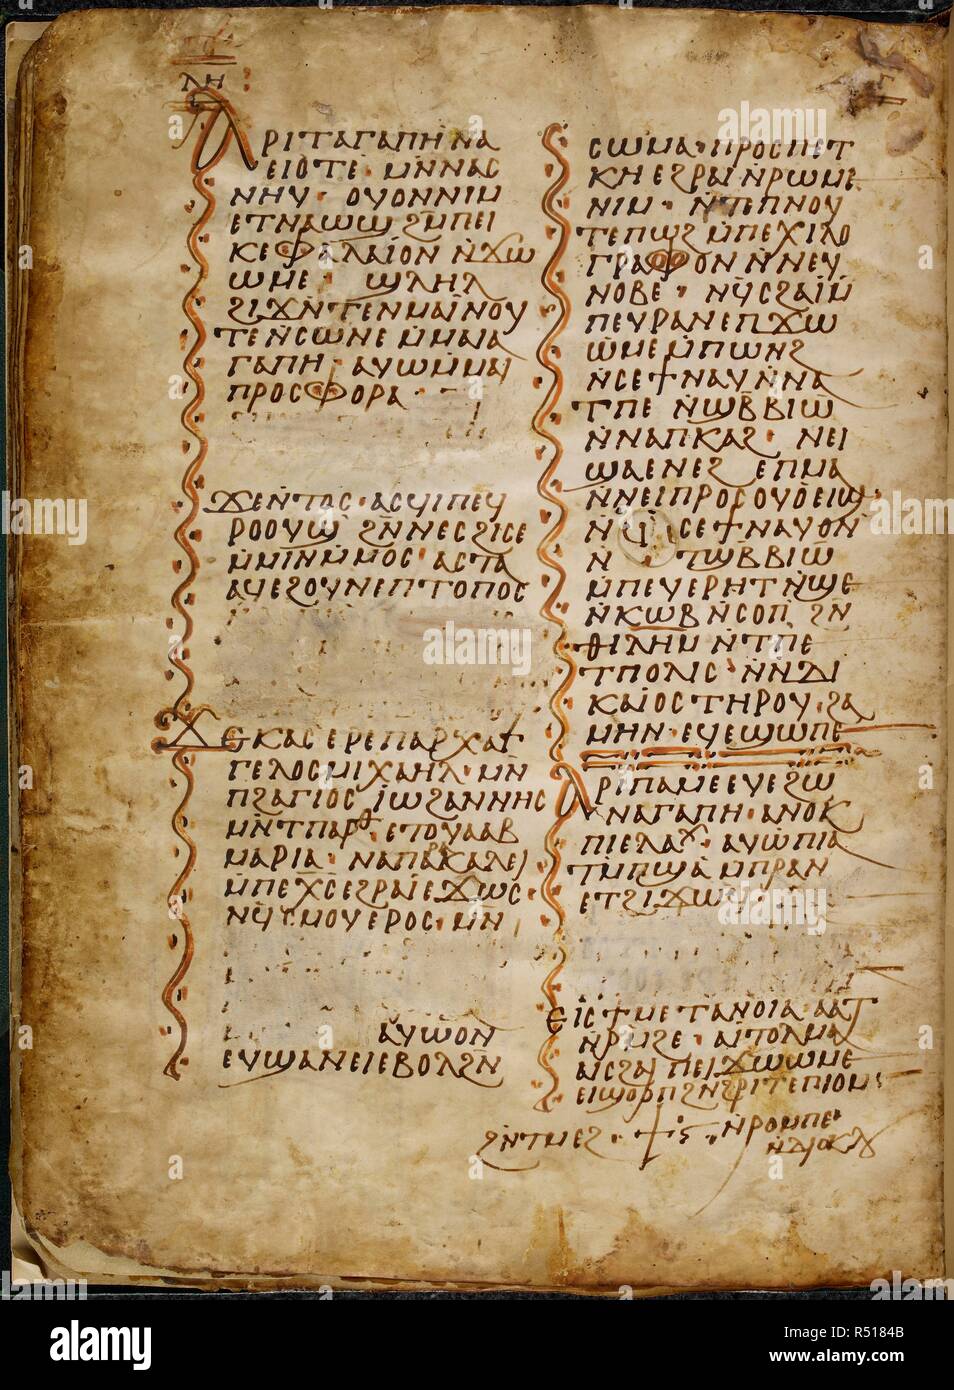 ⲗⲏ
ⲁⲣⲓⲧⲁⲅⲁⲡⲏ ⲛⲁ
ⲉⲓⲟⲧⲉ · ⲙⲛ̄ⲛⲁⲥ
ⲛⲏⲩ · ⲟⲩⲟⲛⲛⲓⲙ
ⲉⲧⲛⲁⲱϣ ϩⲙⲡⲉⲓ
ⲕⲉⲫⲁⲗⲁⲓⲟⲛ ⲛ̇ϫⲱ
ⲱⲙⲉ · ϣⲗⲏⲗ
ϩⲓϫⲛ̄ⲧⲉⲛⲙⲁⲓ̈ⲛⲟⲩ
ⲧⲉⲛ̇ⲥⲱⲛⲉ ⲙ̇ⲙⲁⲓⲁ
ⲅⲁⲡⲏ · ⲁⲩⲱⲙ̇ⲙⲁⲓ̈
ⲡⲣⲟⲥⲫⲟⲣⲁ ·
ϫⲉⲛ̇ⲧⲟⲥ · ⲁⲥϥⲓⲡⲉϥ
ⲣⲟⲟⲩϣ ϩⲛ̄ⲛⲉⲥϩⲓⲥⲉ
ⲙ̇ⲙⲓⲛⲙ̇ⲙⲟⲥ · ⲁⲥⲧⲁ
ⲁϥⲉϩⲟⲩⲛⲉⲡⲧⲟⲡⲟⲥ
ϫⲉⲕⲁⲥⲉⲣⲉⲡⲁⲣⲭⲁⲅ
ⲅⲉⲗⲟⲥⲙⲓⲭⲁⲏⲗ · ⲙⲛ̄
ⲡϩⲁⲅⲓⲟⲥ ⲓ̈ⲱϩⲁⲛⲛⲏⲥ
ⲙⲛ̄ⲧⲡⲁⲣⲑ · ⲉⲧⲟⲩⲁⲁⲃ
ⲙⲁⲣⲓⲁ · ⲛⲁⲡⲁⲣⲁⲕⲁⲗⲉⲓ
ⲙ̇ⲡⲉⲭ̄ⲥ̄ⲉϩⲣⲁⲓ̈ⲉϫⲱⲥ ·
ⲛϥ̄ⲥⲙⲟⲩⲉⲣⲟⲥ · ⲙⲛ
ⲁⲩⲱⲟⲛ
ⲉⲩϣⲁⲛⲉⲓⲉⲃⲟⲗϩⲛ
ⲥⲱⲙⲁ · ⲡⲣⲟⲥⲡⲉⲧ
ⲕⲏ ⲉϩⲣⲁⲓ ⲛ̇ⲣⲱⲙⲉ
ⲛⲓⲙ · ⲛ̇ⲧⲉⲡⲛⲟⲩ
ⲧⲉⲡⲱϩ ⲙ̇ⲡⲉⲭⲓⲗⲟ
ⲅⲣⲁⲫⲟⲛ ⲛ̇ⲛⲉⲩ
ⲛⲟⲃⲉ · ⲛϥ̄ⲥϩⲁⲓ̈ⲙ̄
ⲡⲉⲩⲣⲁⲛⲉⲡϫⲱ
ⲱⲙⲉⲙ̇ⲡⲱⲛϩ
ⲛ̇ⲥⲉϯⲛⲁⲩⲛ̇ⲛⲁ
ⲧⲡⲉ ⲛ̇ϣⲃⲃⲓⲱ
ⲛ̇ⲛⲁⲡⲕⲁϩ · ⲛⲉⲓ
ϣⲁⲉⲛⲉϩ ⲉⲡⲙⲁ
ⲛ̇ⲛⲉⲓⲡⲣⲟⲥⲟⲩⲟⲉⲓϣ ·
ⲥⲉϯⲛⲁⲩⲟⲛ
ⲛ ⲧϣⲃⲃⲓⲱ
ⲙ̇ⲡⲉⲩⲉⲣⲏⲧ ⲛ̇ϣⲉ
ⲛ̇ⲕⲱⲃ ⲛ̇ⲥⲟⲡ ϩⲛ
ⲑⲓⲗⲏⲙ ⲛ̇ⲧⲡⲉ
ⲧⲡⲟⲗⲓⲥ · ⲛ̇ⲛⲇⲓ
ⲕⲁⲓⲟⲥⲧⲏⲣⲟⲩ · ϩⲁ
ⲙⲏⲛ · ⲉϥⲉϣⲱⲡⲉ
ⲁⲣⲓⲡⲁⲙⲉⲉⲩⲉϩⲱ
ⲛⲁⲅⲁⲡⲏ · ⲁⲛⲟⲕ
ⲡⲓⲉⲗⲁⲭ · ⲁⲩⲱⲡⲓⲁ
ⲧⲙ̇ⲡϣⲁ ⲙ̇ⲡⲣⲁⲛ
ⲉⲧϩⲓϫⲱϥ ·
ⲉⲓⲥϯⲙⲉⲧⲁⲛⲟⲓⲁ
ⲁⲓⲧⲟⲗⲙⲁ
ⲁⲓⲥϩⲁⲓ ⲡⲉⲓϫⲱⲱⲙⲉ
ϩⲛ̇ⲧⲙⲉϩ · ⲛ̇ⲣⲟⲙⲡⲉ